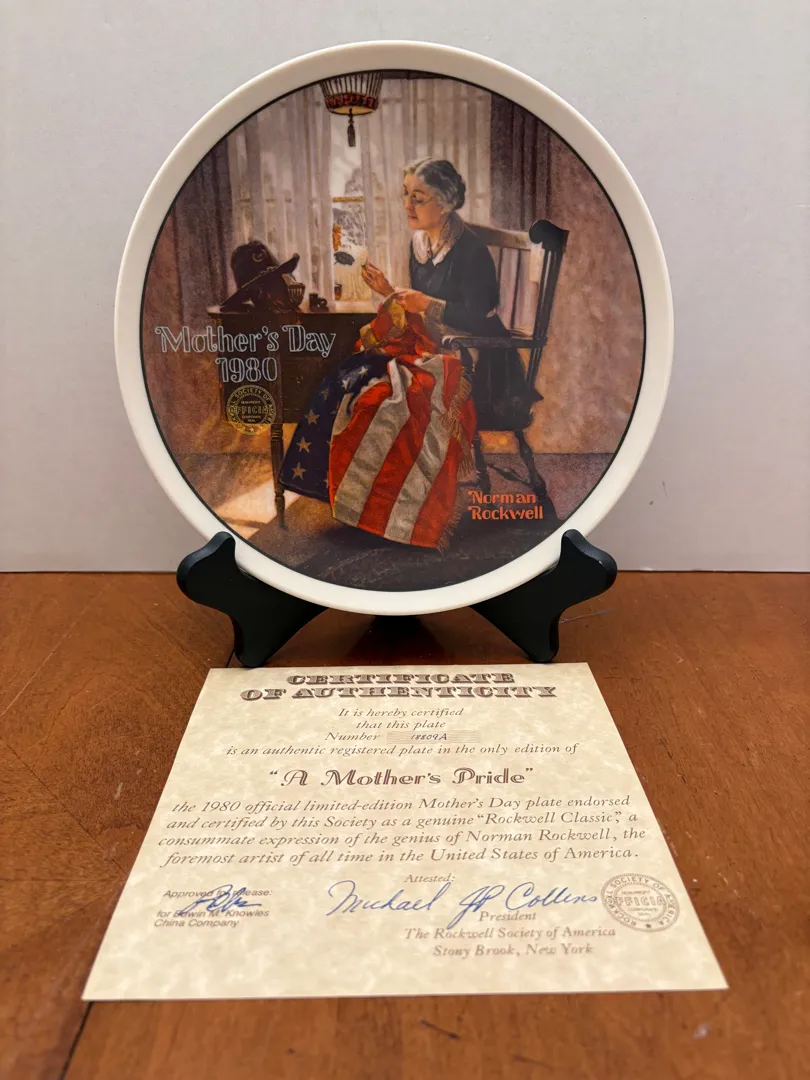 Mother's Day
1980
SOCIETY OF
OFFICIAL
Norman
Rockwell
CERTIFICATE
OF AUTHENTICITY
It is hereby certified
that this plate
Number 18809A
is an authentic registered plate in the only edition of
"A Mother's Pride"
the 1980 official limited-edition Mother's Day plate endorsed
and certified by this Society as a genuine "Rockwell Classic," a
consummate expression of the genius of Norman Rockwell, the
foremost artist of all time in the United States of America.
Attested:
Approved for release:
for Edwin M. Knowles
China Company
Michael JP Collins
President
The Rockwell Society of America
Stony Brook, New York
ROCKWELL SOCIETY OF AMERICA
OFFICIAL